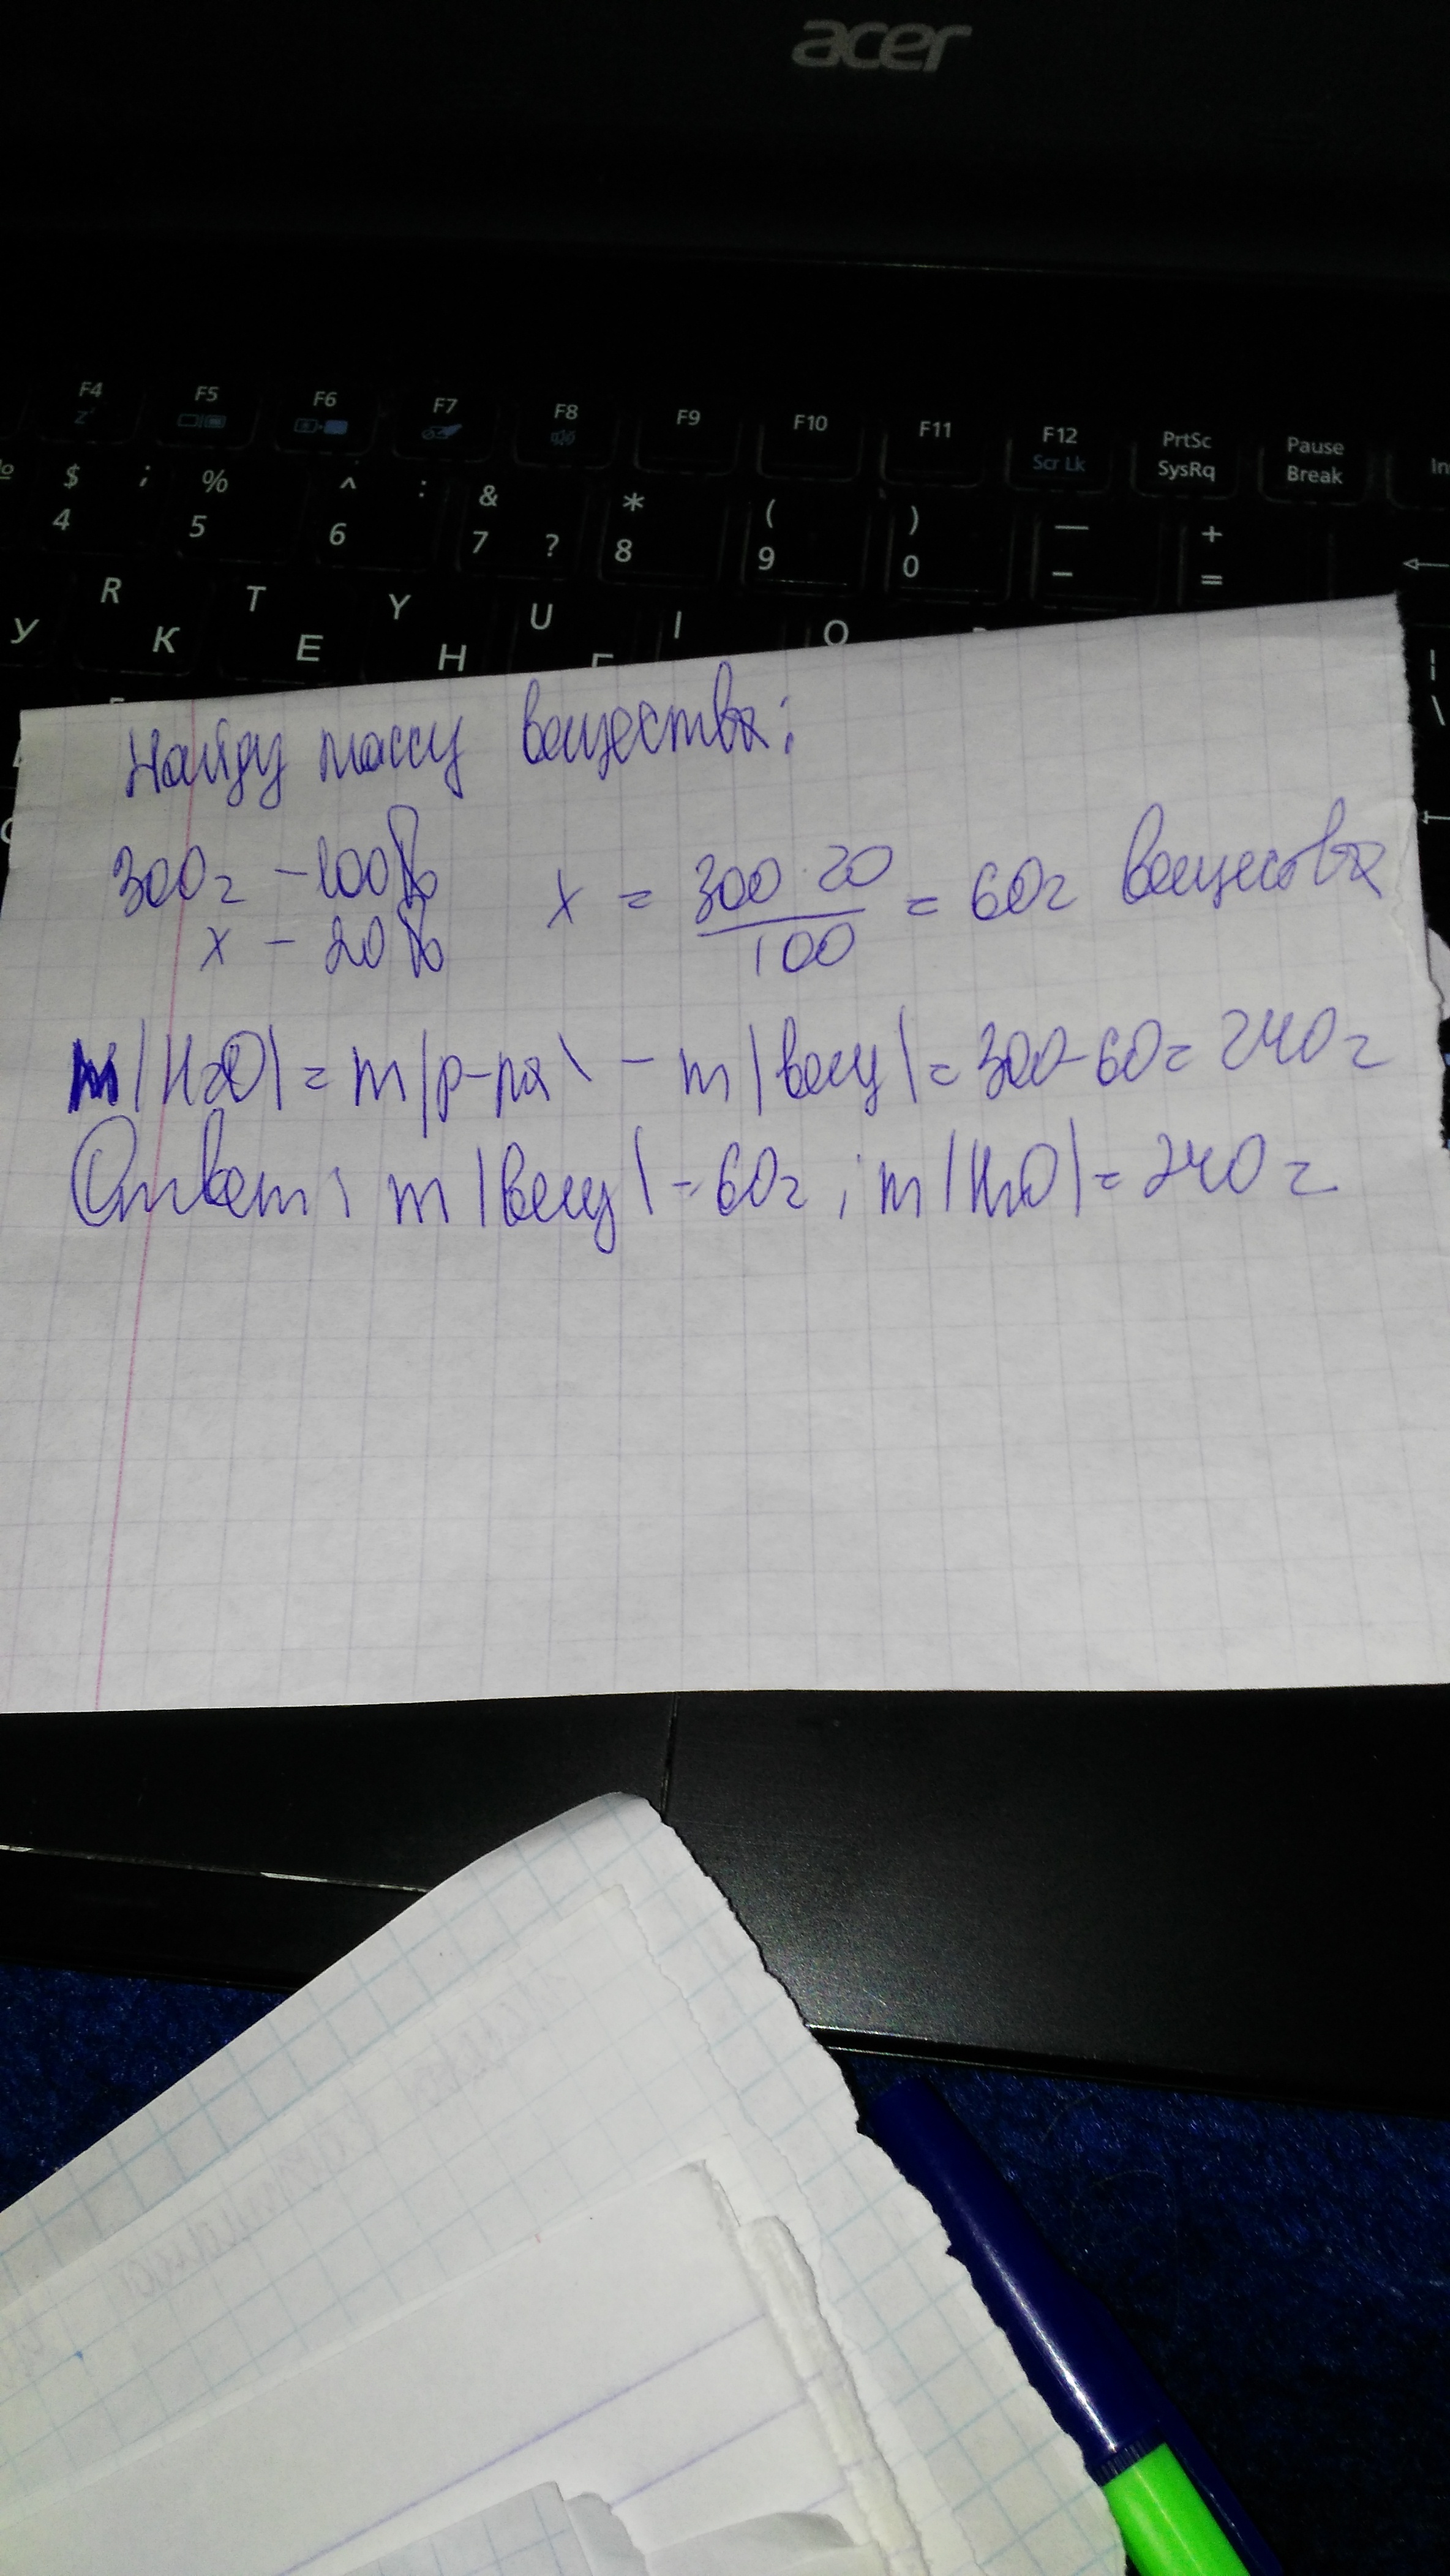 acer
F4 F5 F6 F7 F8 F9 F10 F11 F12 PrtSc Pause In
Scr Lk SysRq Break
$ ; % ^ : & * ( ) — +
4 5 6 7 ? 8 9 0 – = ←
R T Y U I O
У К Е Н
Найду массу вещества:
300г – 100% x = 300·20/100 = 60г вещества
x – 20%
m|H2O| = m|р-ра\ – m|вещ\ = 300-60 = 240г
Ответ: m|вещ\ = 60г; m|H2O| = 240г